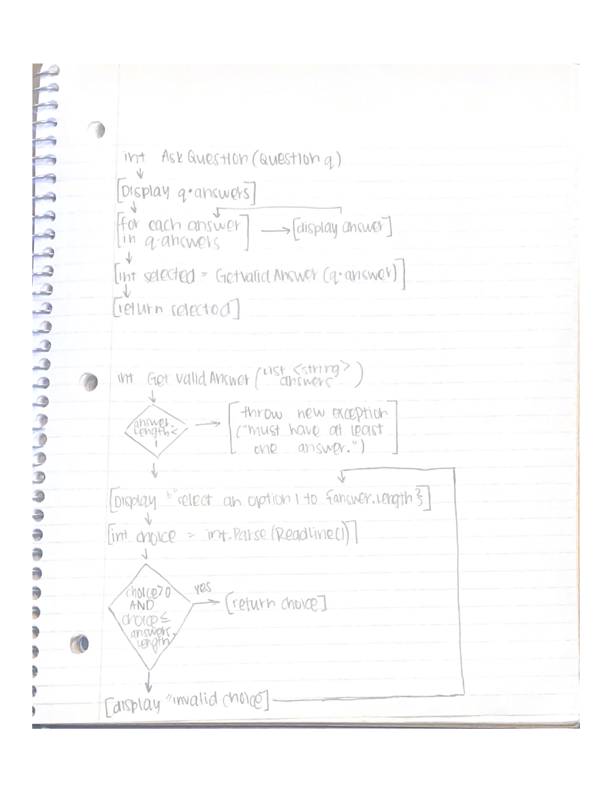 int AskQuestion (Question q)
[Display q.answers]
[for each answer
in q.answers]
[display answer]
[int selected = GetValidAnswer (q.answer)]
[return selected]
int Get Valid Answer (List <string>
answers)
answer.
Length <
1
[throw new exception
("must have at least
one answer.")]
[Display $"select an option 1 to {answer.length}]
[int choice = int.Parse(Readline())]
choice>0
AND
choice ≤
answers.
length
yes
[return choice]
[display "invalid choice]